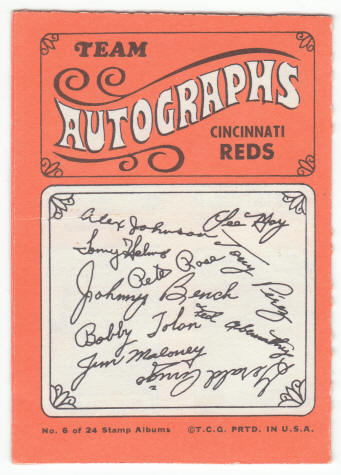 TEAM
AUTOGRAPHS
CINCINNATI
REDS
Alex Johnson
Lee May
Tommy Helms
Tony Perez
Pete Rose
Johnny Bench
Ted Abernathy
Bobby Tolan
Jim Maloney
Gerald Arrigo
No. 6 of 24 Stamp Albums
©T.C.G. PRTD. IN U.S.A.